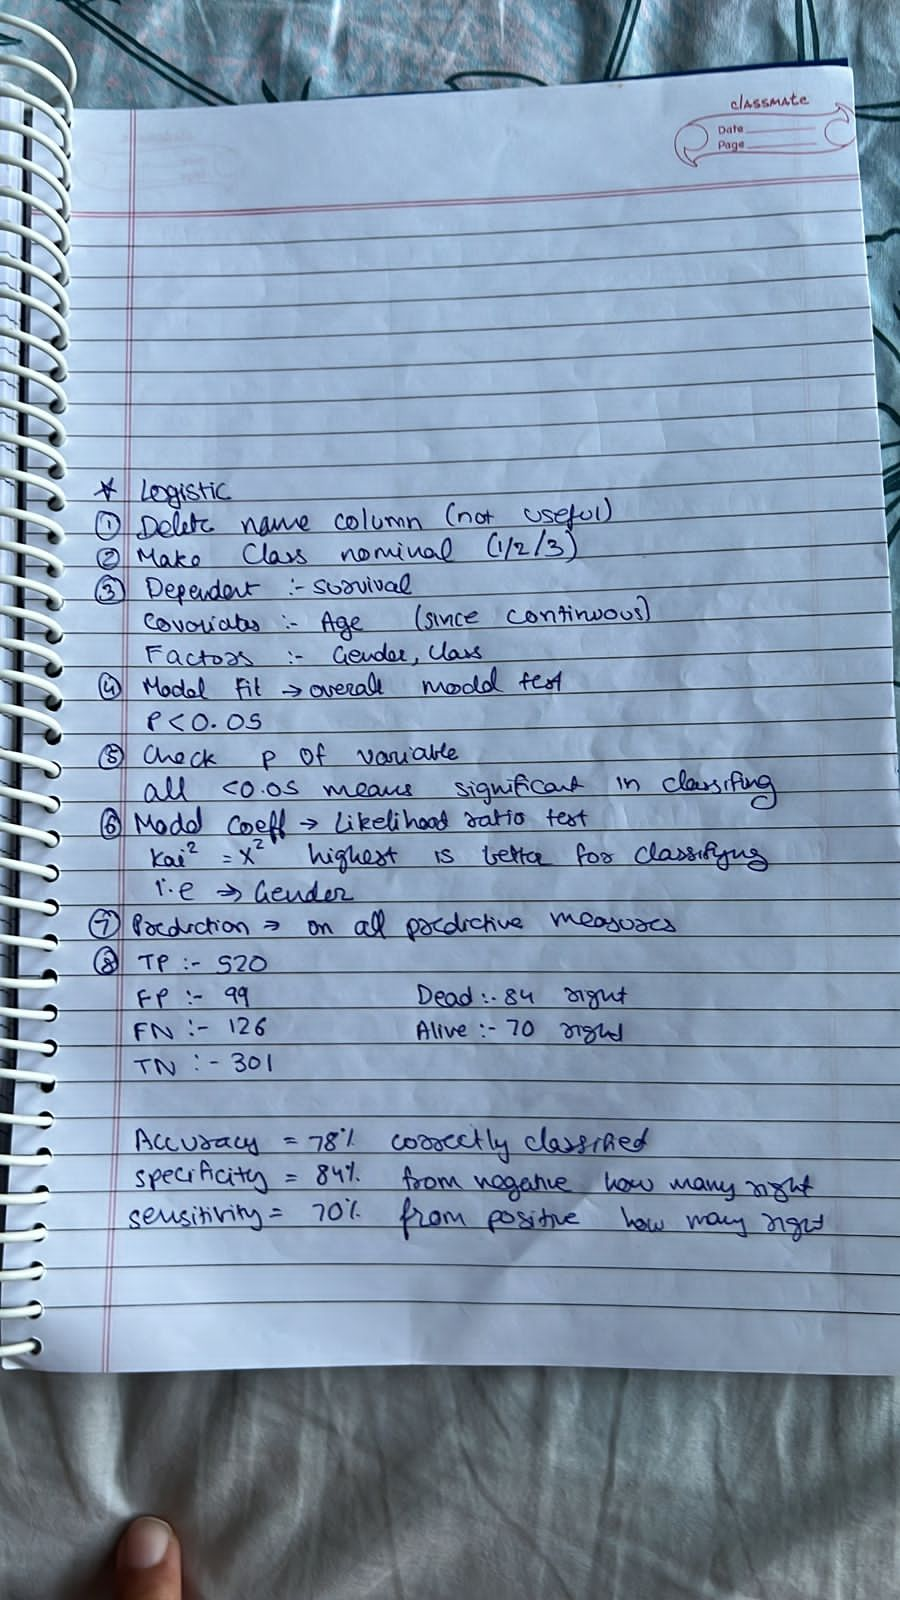 classmate
Date
Page
* Logistic
① Delete name column (not useful)
② Make Class nominal (1/2/3)
③ Dependent :- survival
Covariates :- Age (since continuous)
Factors :- Gender, Class
④ Model Fit → overall model test
P < 0.05
⑤ Check p of variable
all <0.05 means significant in classifing
⑥ Model Coeff → Likelihood ratio test
Kai² = X² highest is better for classifyng
i.e ⇒ Gender
⑦ Prediction ⇒ on all predictive measures
⑧ TP :- 520
FP :- 99 Dead :- 84 right
FN :- 126 Alive :- 70 right
TN :- 301
Accuracy = 78% correctly classified
specificity = 84% from negative how many right
sensitivity = 70% from positive how many right